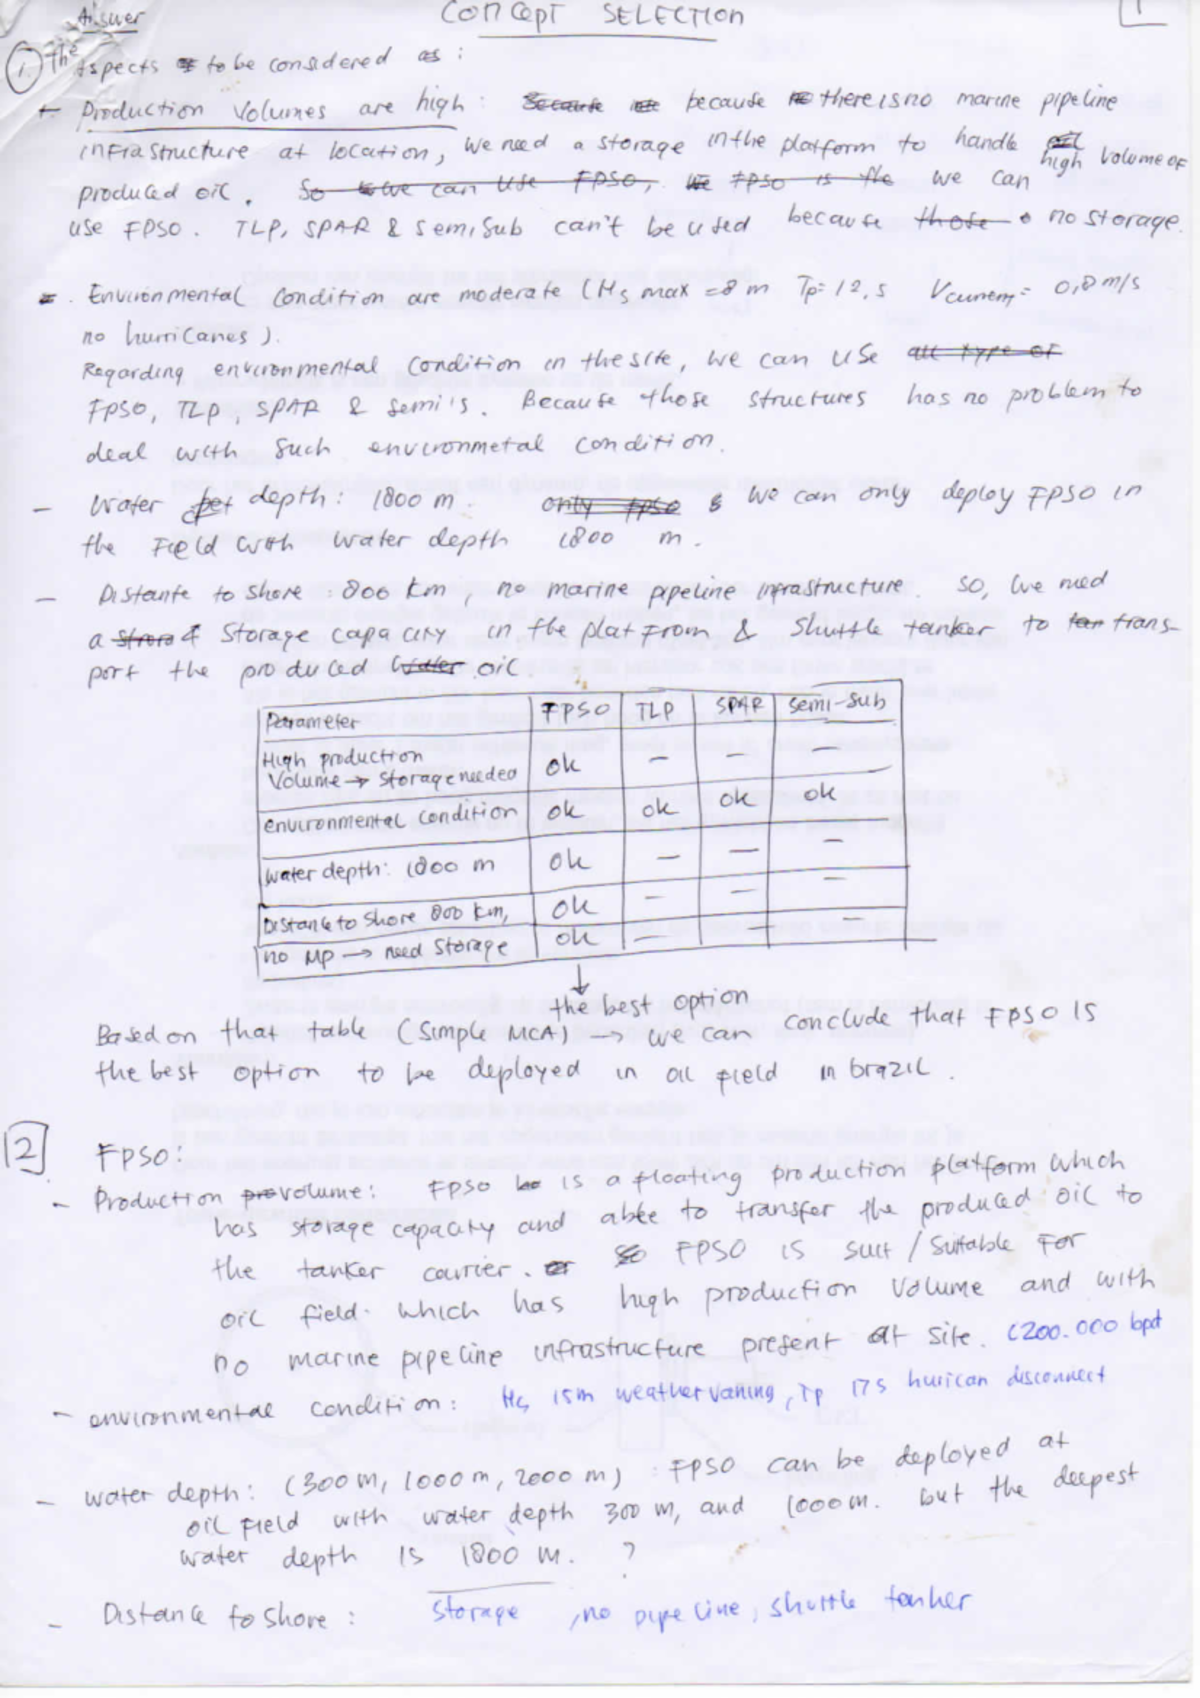 Answer
CONCEPT SELECTION
1
1. The aspects to be considered as :
Production Volumes are high : because there is no marine pipeline
infrastructure at location, we need a storage in the platform to handle high volume of
produced oil. So we can use FPSO, FPSO is the we can
use FPSO. TLP, SPAR & Semisub can't be used because those no storage.
Environmental condition are moderate (Hs max = 8 m Tp= 12, s Vcurrent = 0,8 m/s
no hurricanes).
Regarding environmental condition in the site, we can use all type of
FPSO, TLP, SPAR & Semi's. Because those structures has no problem to
deal with such environmetal condition.
- Water depth : 1800 m. only FPSO we can only deploy FPSO in
the Field with water depth 1800 m.
- Distante to shore : 800 km, no marine pipeline infrastructure. So, we need
a storage capacity in the platfrom & shuttle tanker to trans-
port the produced water oil.
Parameter FPSO TLP SPAR Semi-Sub
High production
Volume → storage needed ok - - -
environmental condition ok ok ok ok
water depth : 1800 m ok - - -
Distance to shore 800 km, ok - - -
no MP → need storage ok - -
↓
the best option
Based on that table (simple MCA) → we can conclude that FPSO is
the best option to be deployed in oil field in brazil.
2 FPSO :
- Production volume : FPSO is a floating production platform which
has storage capacity and able to transfer the produced oil to
the tanker carrier. So FPSO is suit / suitable for
oil field which has high production volume and with
no marine pipeline infrastructure present at site. (200.000 bpd
- environmental condition : Hs 15m weathervaning, Tp 17s hurican disconnect
- water depth : (300 m, 1000 m, 2000 m) : FPSO can be deployed at
oil field with water depth 300 m, and 1000 m. but the deepest
water depth is 1800 m. ?
- Distance to shore : storage , no pipeline, shuttle tanker